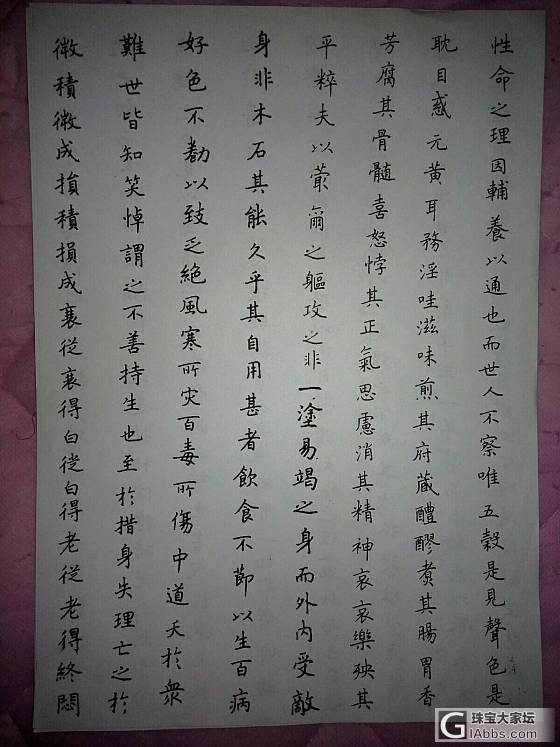 性命之理因輔養以通也而世人不察唯五穀是見聲色是
耽目惑元黃耳務淫哇滋味煎其府藏醴醪煑其腸胃香
芳腐其骨髓喜怒悖其正氣思慮消其精神哀哀樂殃其
平粹夫以蕞爾之軀攻之非一塗易竭之身而外内受敵
身非木石其能久乎其自用甚者飲食不節以生百病
好色不勌以致乏絶風寒所灾百毒所傷中道夭於衆
難世皆知笑悼謂之不善持生也至於措身失理亡之於
微積微成損積損成衰從衰得白從白得老從老得終悶
珠宝大家坛
GIabbs.COM